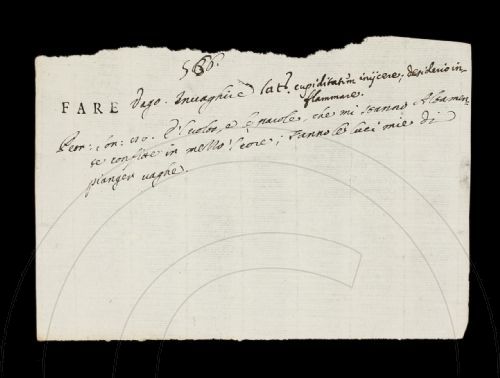 FARE Vago. Invaghire lat.e cupiditatem injicere; desiderio in-
flammare.
Petr: Son: 'l volto, e le parole, che mi stanno Altamen-
te confitte in mezzo 'l core; Fanno le luci mie di
pianger vaghe.